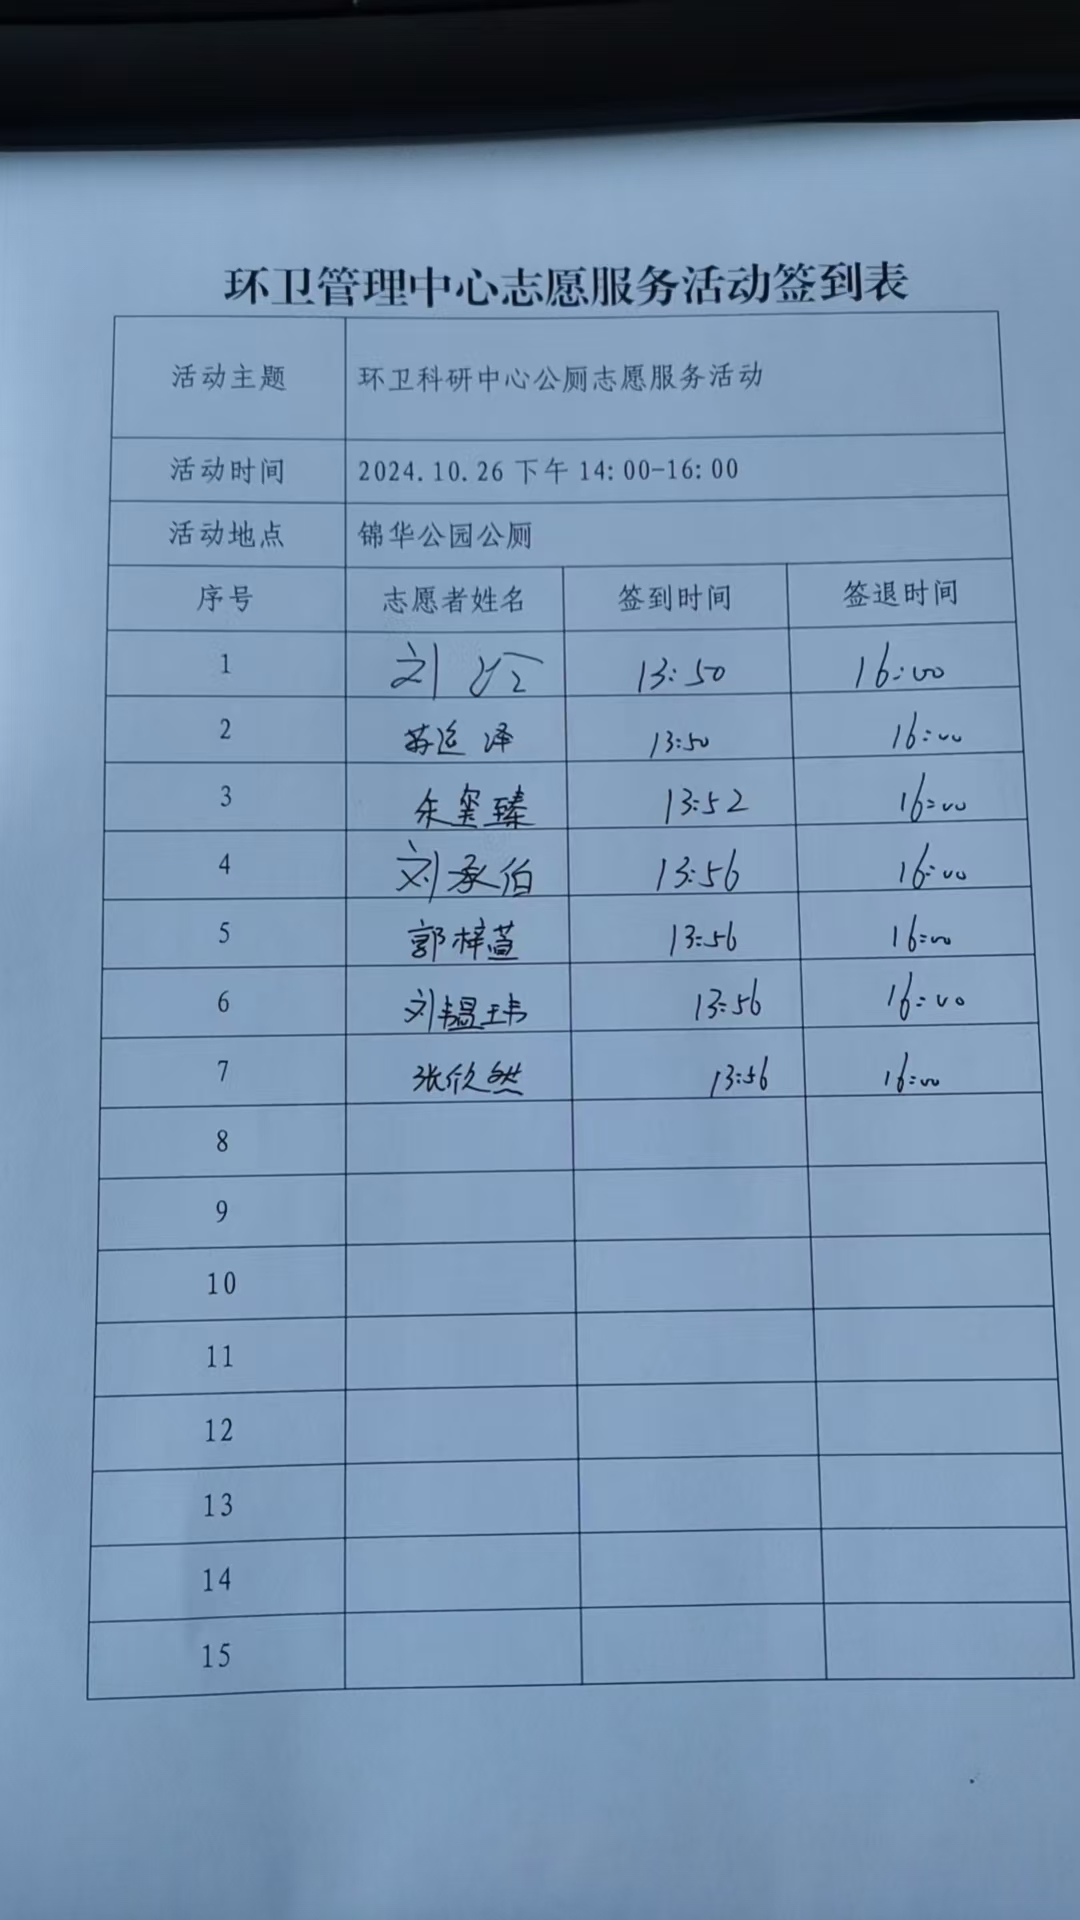 环卫管理中心志愿服务活动签到表
活动主题 环卫科研中心公厕志愿服务活动
活动时间 2024.10.26 下午 14:00-16:00
活动地点 锦华公园公厕
序号 志愿者姓名 签到时间 签退时间
1 刘 13:50 16:00
2 苏运泽 13:50 16:00
3 朱玺臻 13:52 16:00
4 刘承伯 13:56 16:00
5 郭梓萱 13:56 16:00
6 刘韫玮 13:56 16:00
7 张欣然 13:56 16:00
8
9
10
11
12
13
14
15